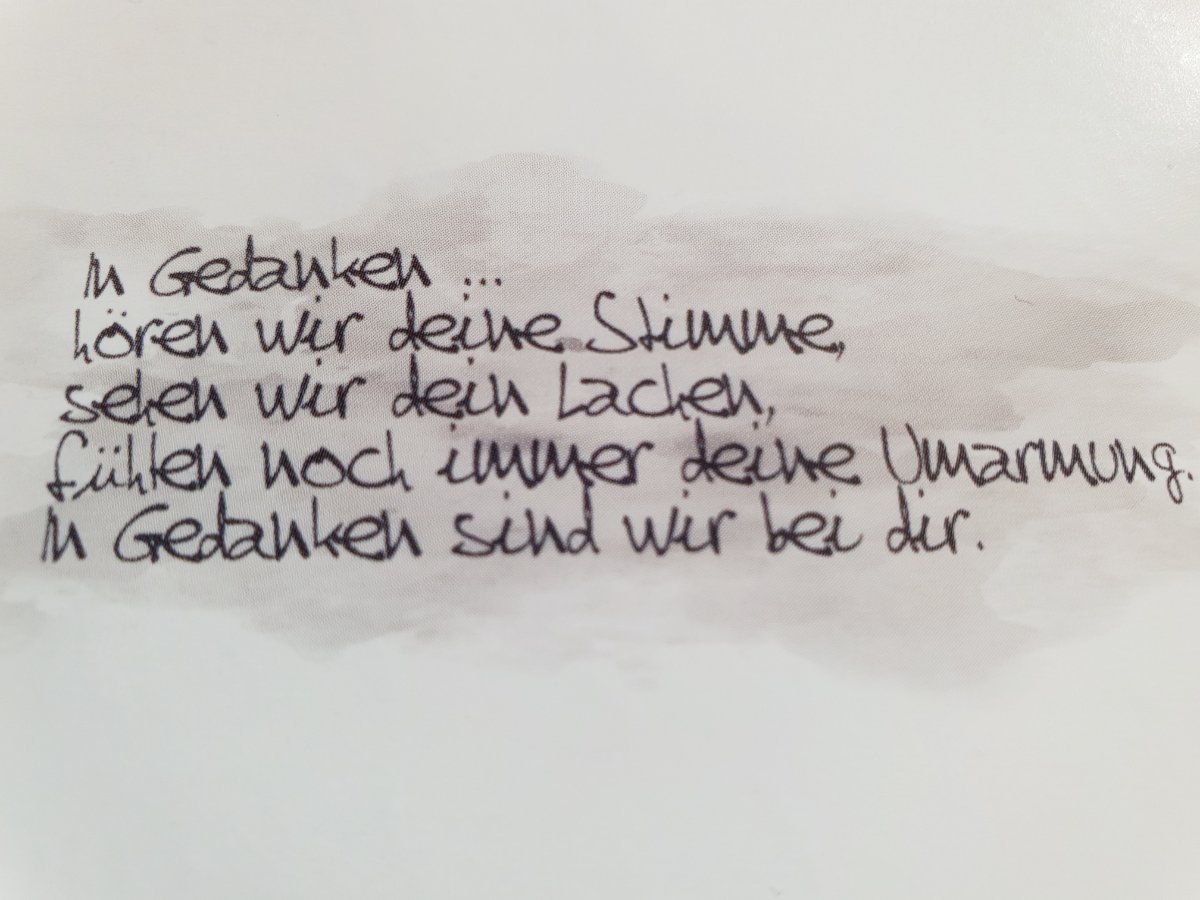 In Gedanken ...
hören wir deine Stimme,
sehen wir dein Lachen,
fühlen noch immer deine Umarmung.
In Gedanken sind wir bei dir.